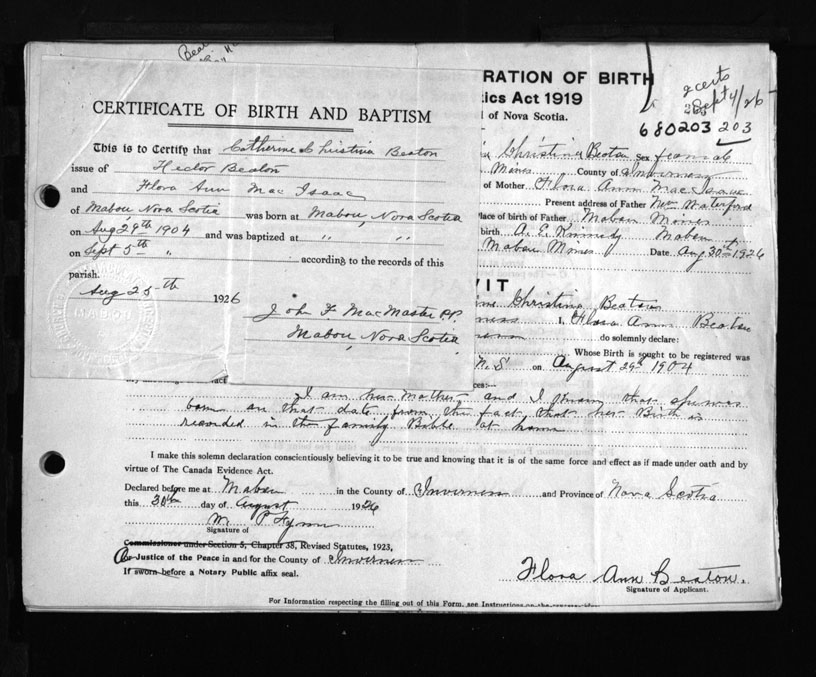 CERTIFICATE OF BIRTH AND BAPTISM
This is to Certify that Catherine Christina Beaton
issue of Hector Beaton
and Flora Ann Mac Isaac
of Mabou, Nova Scotia was born at Mabou, Nova Scotia
on Aug 29th 1904 and was baptized at " "
on Sept 5th " according to the records of this
parish.
Aug 25th 1926
John F. MacMaster P.P.
Mabou, Nova Scotia
RATION OF BIRTH
tics Act 1919
l of Nova Scotia.
2 certs
Sept 4/26
680203 203
Christina Beaton Sex female
Mines County of Inverness
of Mother Flora Ann MacIsaac
Present address of Father New Waterford
lace of birth of Father Mabou Mines
birth, A. E. Kennedy Mabou
Mabou Mines Date Aug 30th 1926
VIT
ine Christina Beaton
I, Flora Ann Beaton
do solemnly declare:
Whose Birth is sought to be registered was
N. S on August 29th 1904
ces:—
I am her Mother, and I know that she was
born on that date from the fact that her Birth is
recorded in the family Bible at home
I make this solemn declaration conscientiously believing it to be true and knowing that it is of the same force and effect as if made under oath and by
virtue of The Canada Evidence Act.
Declared before me at Mabou in the County of Inverness and Province of Nova Scotia
this 30th day of August 1926
Signature of
Commissioner under Section 5, Chapter 38, Revised Statutes, 1923,
or Justice of the Peace in and for the County of Inverness
If sworn before a Notary Public affix seal.
Flora Ann Beaton.
Signature of Applicant.
For Information respecting the filling out of this Form, see Instructions on the